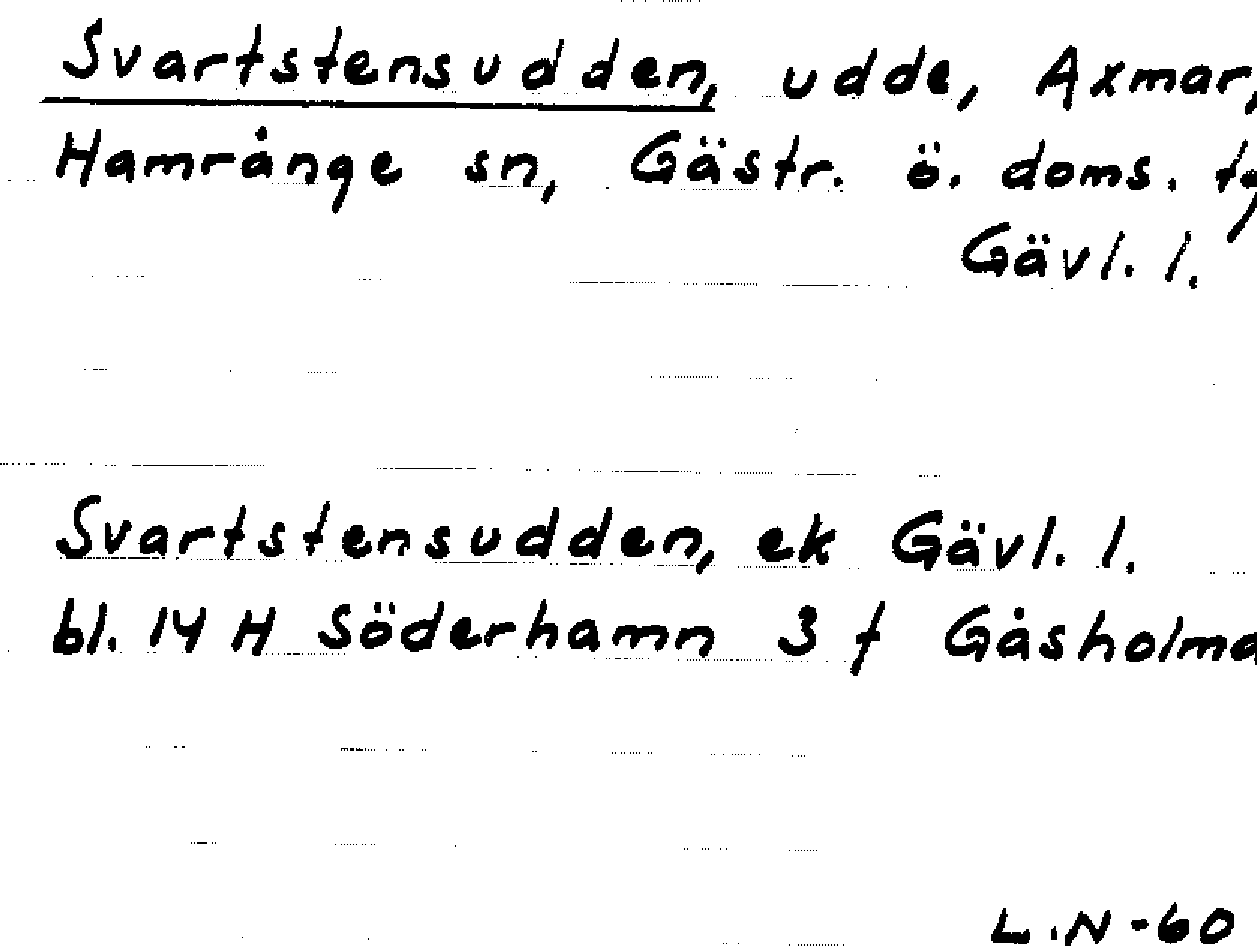 Svartstensudden, udde, Axmar,
Hamrånge sn, Gästr. ö. doms. tg
Gävl. l.
Svartstensudden, ek Gävl. l.
bl. 14 H Söderhamn 3 f Gåsholma
L.N -60